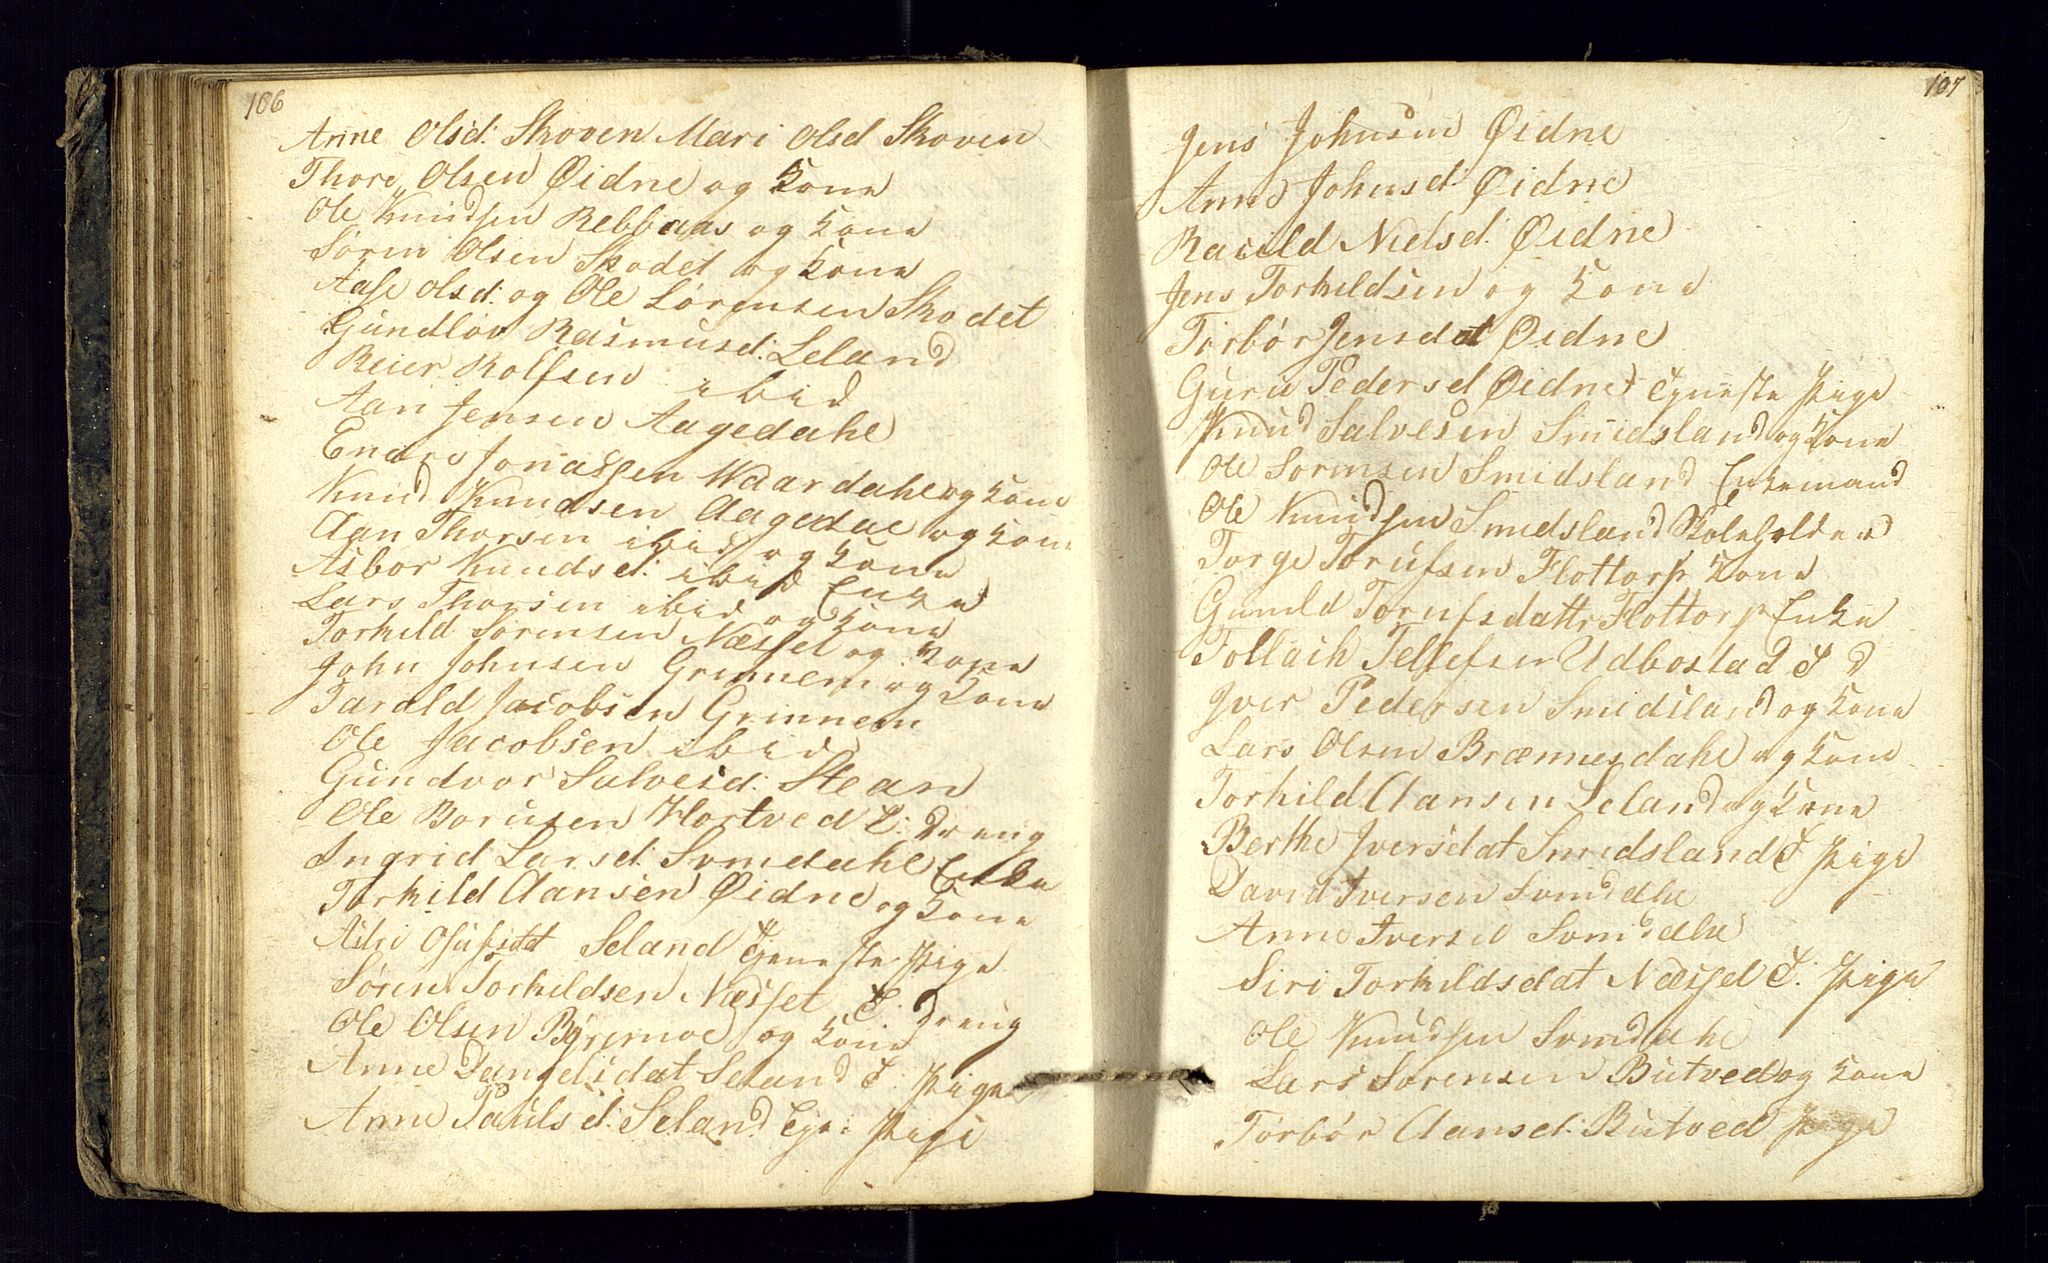 106
Anne Olsd: Skoven Mari Olsd Skoven
Thore Olsen Øidne og Kone
Ole Knudsen Rebbaas og Kone
Sören Olsen Skodet og Kone
Aase Olsd: og Ole Sörensen Skodet
Gundlov Rasmusd: Leland
Reier Rolfsen ibid
Aan Jensen Aagedahl
Endre Jonassen Waardahl og Kone
Knud Knudsen Aagedal og Kone
Aan Thorsen ibid og Kone
Asbor Knudsd: ibid Enke
Lars Thorsen ibid og Kone
Torkild Sörensen Næsset og Kone
John Johnsen Grinnem og Kone
Tarald Jacobsen Grinnem
Ole Jacobsen ibid
Gundvor Salvesd: Stean
Ole Borusen Hortved T: Dreng
Ingrid Larsd: Svindahl Enke
Torkild Aansen Øidne og Kone
Asl Osufsdt Seland Tjeneste Pige
Sören Torkildsen Næsset T. Dreng
Ole Olsen Byremoe og Kone
Anne Danjelsdat Seland T. Pige
Anne Paulsd: Seland Tje: Pige
107
Jens Johnsen Øidne
Anne Johnsd: Øidne
Racild Nielsd: Øidne
Jens Torkildsen og Kone
Torbör Jensdat Øidne
Guru Pedersd Øidne Tjeneste Pige
Knud Salvesen Smidsland og Kone
Ole Sörensen Smidsland Enkemand
Ole Knudsen Smidsland Skoleholder
Torge Torufsen Flottorp Kone
Gunild Torufsdattr Flottorp Enke
Tollach Tellefsen Udbostad T D
Iver Pedersen Smidsland og Kone
Lars Olsen Brænnesdahl og Kone
Torkild Aansen Leland og Kone
Berthe Iversdat Smidsland T Pige
David Iversen Svindahl
Anne Iversd Svindahl
Siri Torkildsdat Næsset T. Pige
Ole Knudsen Svindahl
Lars Sörensen Butved og Kone
Torbör Aansd: Butved Pige